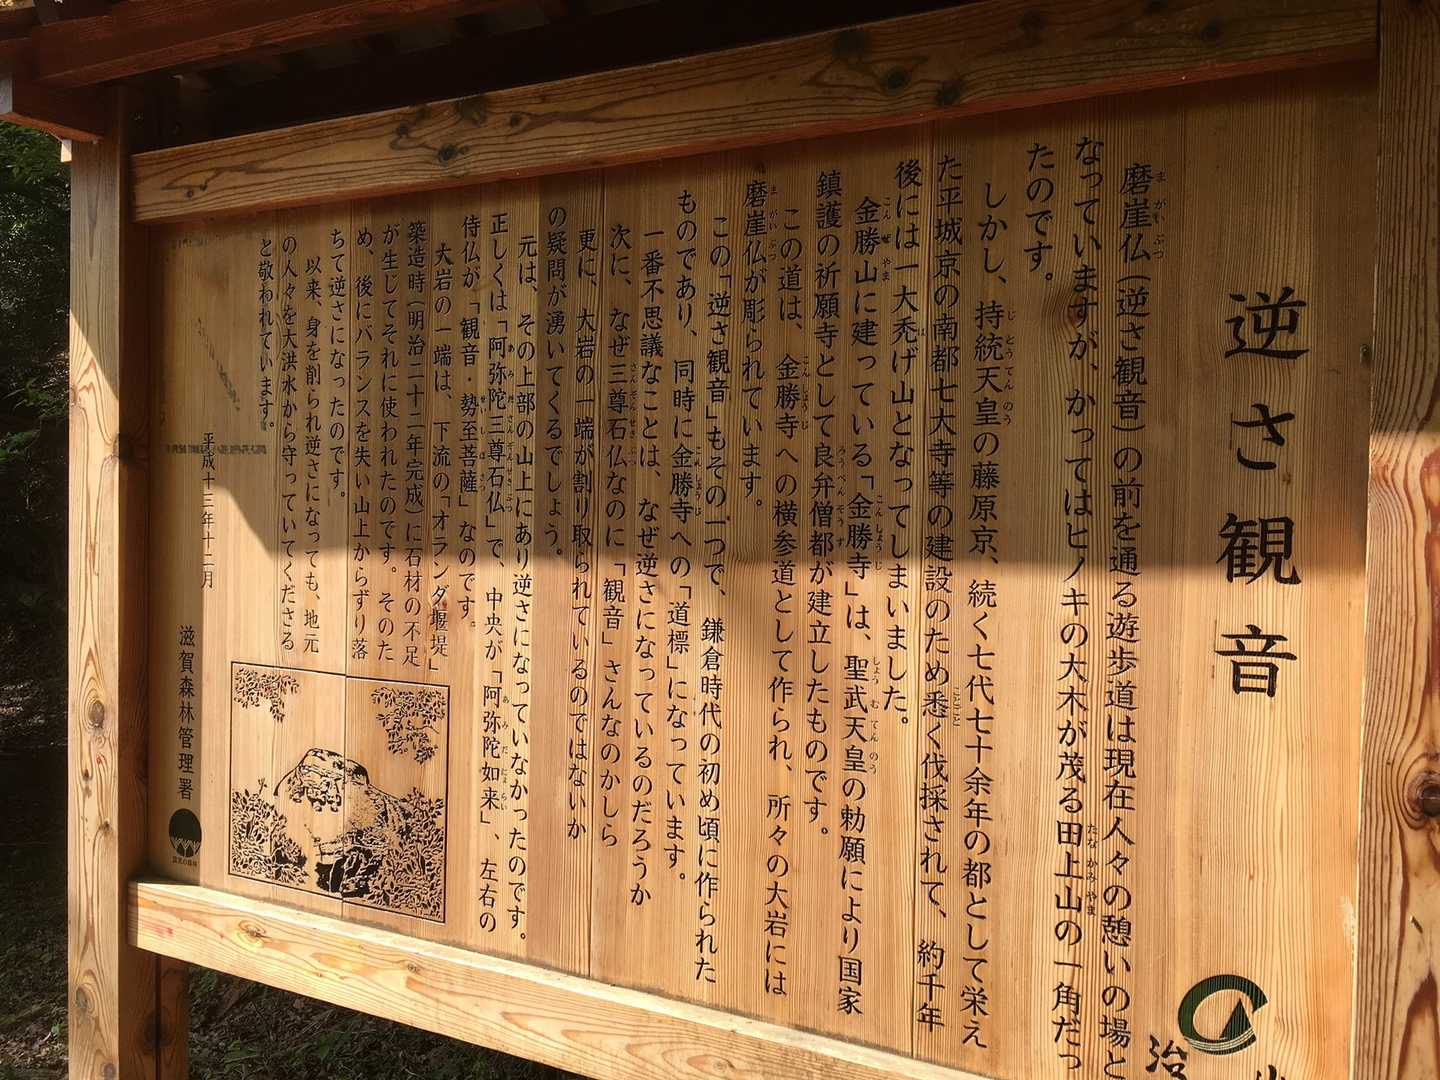 逆さ観音
磨崖仏(逆さ観音)の前を通る遊歩道は現在人々の憩いの場と
なっていますが、かってはヒノキの大木が茂る田上山の一角だっ
たのです。
しかし、持統天皇の藤原京、続く七代七十余年の都として栄え
た平城京の南都七大寺等の建設のため悉く伐採されて、約千年
後には一大禿げ山となってしまいました。
金勝山に建っている「金勝寺」は、聖武天皇の勅願により国家
鎮護の祈願寺として良弁僧都が建立したものです。
この道は、金勝寺への横参道として作られ、所々の大岩には
磨崖仏が彫られています。
この「逆さ観音」もその一つで、鎌倉時代の初め頃に作られた
ものであり、同時に金勝寺への「道標」になっています。
一番不思議なことは、なぜ逆さになっているのだろうか
次に、なぜ三尊石仏なのに「観音」さんなのかしら
更に、大岩の一端が割り取られているのではないか
の疑問が湧いてくるでしょう。
元は、その上部の山上にあり逆さになっていなかったのです。
正しくは「阿弥陀三尊石仏」で、中央が「阿弥陀如来」、左右の
侍仏が「観音・勢至菩薩」なのです。
大岩の一端は、下流の「オランダ堰堤」
築造時(明治二十二年完成)に石材の不足
が生じてそれに使われたのです。そのた
め、後にバランスを失い山上からずり落
ちて逆さになったのです。
以来、身を削られ逆さになっても、地元
の人々を大洪水から守っていてくださる
と敬われています。
平成十三年十二月
滋賀森林管理署
治